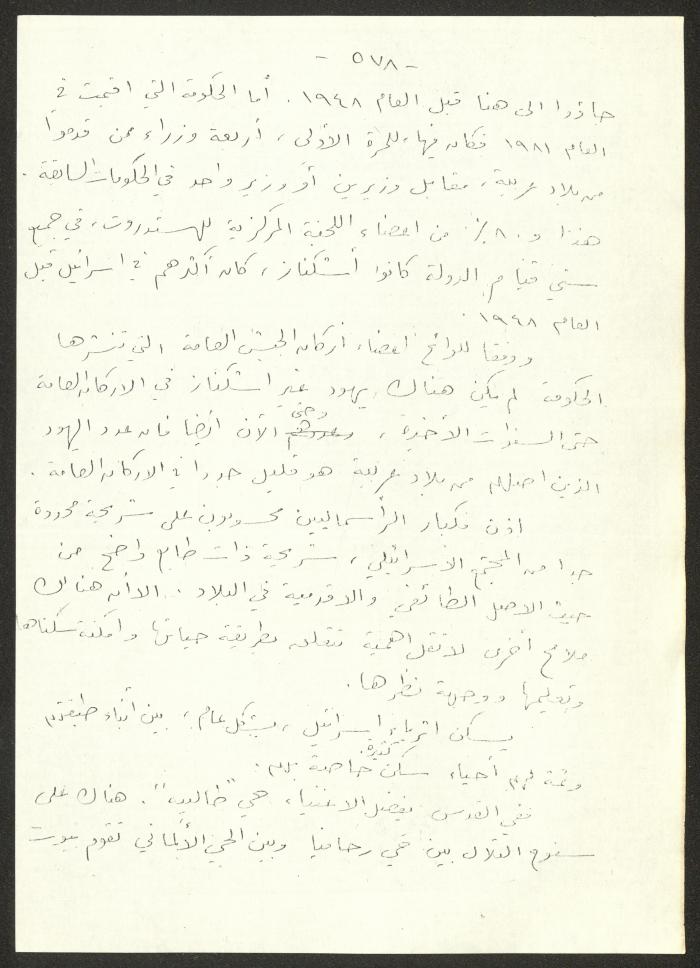 - ٥٧٨ -
جاؤوا الى هنا قبل العام ١٩٤٨. أما الحكومة التي اقيمت في
العام ١٩٨١ فكان فيها، للمرة الأولى، أربعة وزراء ممن قدموا
من بلاد عربية، مقابل وزيرين أو وزير واحد في الحكومات السابقة.
هذا و٨٠٪ من اعضاء اللجنة المركزية للهستدروت، في جميع
سني قيام الدولة كانوا أشكناز، كان أكثرهم في اسرائيل قبل
العام ١٩٤٨.
ووفقا للوائح اعضاء اركان الجيش العامة التي تنشرها
الحكومة لم يكن هناك يهود غير اشكناز في الاركان العامة
حتى السنوات الأخيرة، وحتى الآن ايضا فان عدد اليهود
الذين اصلهم من بلاد عربية هو قليل جدا في الاركان العامة.
اذن فكبار الرأسماليين محسوبون على شريحة محدودة
جدا من المجتمع الاسرائيلي، شريحة ذات طابع واضح من
حيث الاصل الطائفي والاقدمية في البلاد. الا أن هناك
ملامح أخرى لا تقل اهمية تتعلق بطريقة حياتها وامكنة سكناها
وتعليمها ووجهة نظرها.
يسكن اثرياء اسرائيل، بشكل عام، بين أبناء طبقتهم
وثمة لهم أحياء سكن كثيرة خاصة بهم.
ففي القدس يفضل الاغنياء حي "طالبيه". هناك على
سفوح التلال بين حي رحافيا وبين الحي الألماني تقوم بيوت